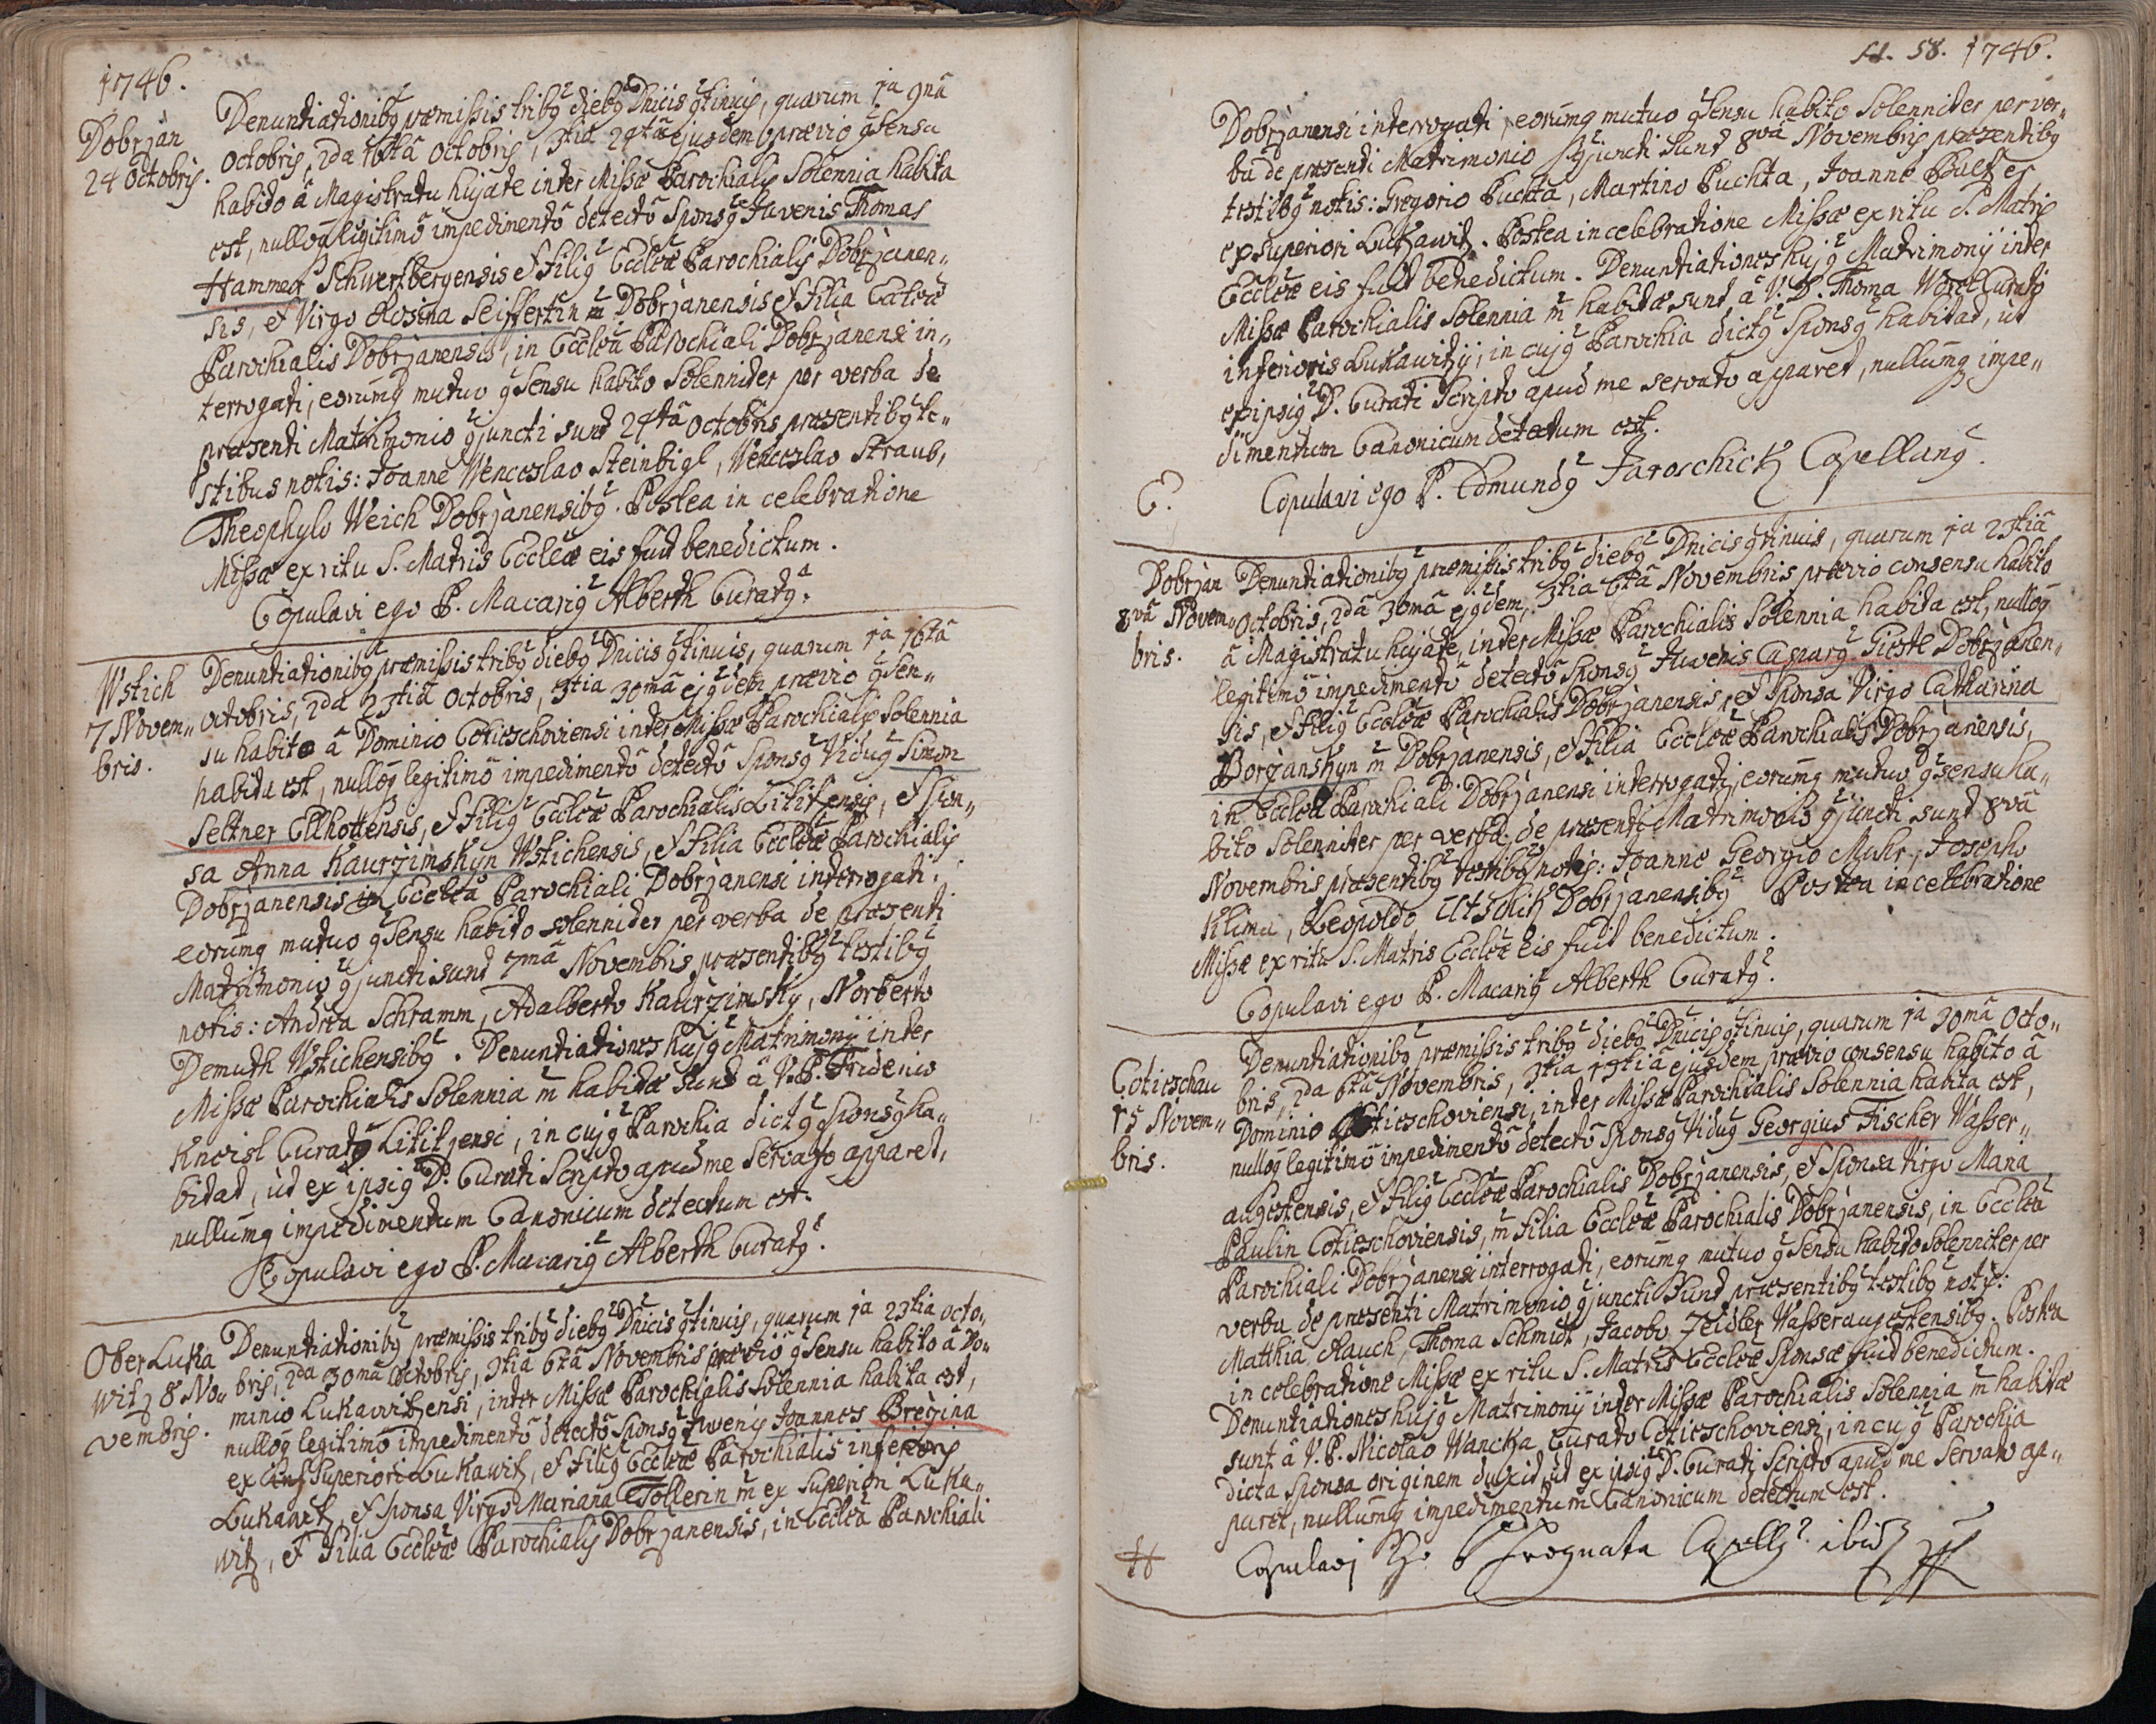 1746.
Dobrzan
24 Octobris.
Denuntiationibꝰ præmissis tribꝰ diebꝰ Dnicis ꝯtinuis, quarum 1a 9nâ
Octobris, 2da 16tâ Octobris, 3tia 24tâ ejusdem prævio ꝯsensu
habito â Magistratu hujate inter Missæ Parochialis Solennia habita
est, nulloq legitimô impedimentô detectô Sponsꝰ Juvenis Thomas
Hammer Schwertzbergensis et Filiꝰ Eccleæ Parochialis Dobrzanen„
sis, et Virgo Rosina Seiffertin m̄ Dobrzanensis et Filia Ecleæ
Parochialis Dobrzanensis, in Ecclea Parochiali Dobrzanensi in„
terrogati, eorumq mutuo ꝯsensu habito Solenniter per verba de
præsenti Matrimonio ꝯjuncti sunt 24tâ Octobris præsentibꝰ te„
stibus notis: Joanne Wenceslao Steinbigl, Wenceslao Straub,
Theophylo Weich Dobrzanensibꝰ. Postea in celebratione
Missæ ex ritu S. Matris Eccleæ eis fuit benedictum.
Copulavi ego P. Macariꝰ Alberth Curatꝰ.
Wstich
7 Novem„
bris.
Denuntiationibꝰ præmissis tribꝰ diebꝰ Dnicis ꝯtinuis, quarum 1a 16tâ
Octobris, 2da 23tiâ Octobris, 3tia 30mâ ejꝰdem prævio ꝯsen„
su habito â Dominio Cotieschoviensi inter Missæ Parochialis Solennia
habita est, nulloq legitimô impedimentô detectô Sponsꝰ Viduꝰ Simon
Seltner Ellhottensis, et Filiꝰ Eccleæ Parochialis Lititzensis, et Spon„
sa Anna Kaurzimskyn Wstichensis, et Filia Eccleæ Parochialis
Dobrzanensis in Ecclea Parochiali Dobrzanensi interrogati,
eorumq mutuo ꝯsensu habito solenniter per verba de præsenti
Matrimonio ꝯjuncti sunt 7mâ Novembris præsentibꝰ testibꝰ
notis: Andrea Schramm, Adalberto Kaurzimsky, Norberto
Demuth Wstichensibꝰ. Denuntiationes hujꝰ Matrimonij inter
Missæ Parochialis Solennia m̄ habitæ sunt â V. P. Fridenico
Kneisl Curatꝰ Lititzensi, in cujꝰ Parochia dictꝰ Sponsꝰ ha„
bitat, ut ex ipsiꝰ D. Curati Scripto apud me Servato apparet,
nullumq impedimentum Canonicum detectum est.
Copulavi ego P. Macariꝰ Alberth Curatꝰ.
Ober Luka
witz 8 No„
vembris.
Denuntiationibꝰ præmissis tribꝰ diebꝰ Dnicis ꝯtinuis, quarum 1a 23tia Octo„
bris, 2da 30mâ Octobris, 3tia 6tâ Novembris prævio ꝯsensu habito â Do„
minio Lukawitzensi, inter Missæ Parochialis Solennia habita est,
nulloq legitimô impedimentô detectô Sponsꝰ Juvenis Joannes Brezina
ex Superiori Lukawitz, et Filiꝰ Eccleæ Parochialis inferioris
Lukawitz, et Sponsa Virgo Mariana Tollerin m̄ ex Superiori Luka„
witz, et Filia Eccleæ Parochialis Dobrzanensis, in Ecclea Parochiali
58. 1746.
Dobrzanensi interrogati, eorumq mutuo ꝯsensu habito Solenniter per ver„
ba de præsenti Matrimonio ꝯjuncti sunt 8vâ Novembris præsentibꝰ
testibꝰ notis: Gregorio Puchta, Martino Puchta, Joanne Paltzer
ex Superiori Lukawitz. Postea in celebratione Missæ ex ritu S. Matris
Eccleæ eis fuit benedictum. Denuntiationes hujꝰ Matrimonij inter
Missæ Parochialis Solennia m̄ habitæ sunt â V. D. Thoma Curato
inferioris Lukawitzij, in cujꝰ Parochia dictꝰ Sponsꝰ habitat, ut
ex ipsiꝰ D. Curati Scripto apud me servato apparet, nullumq impe„
dimentum Canonicum detectum est.
C. Copulavi ego P. Edmundꝰ Jaroschick Capellanꝰ.
Dobrzan
8vâ Novem„
bris.
Denuntiationibꝰ præmissis tribꝰ diebꝰ Dnicis ꝯtinuis, quarum 1a 23tiâ
Octobris, 2da 30mâ ejꝰdem, 3tia 6tâ Novembris prævio consensu habito
â Magistratu hujate, inter Missæ Parochialis Solennia habita est, nulloq
legitimô impedimentô detectô Sponsꝰ Juvenis Casparꝰ Gierte Dobrzanen„
sis, et Filiꝰ Eccleæ Parochialis Dobrzanensis, et Sponsa Virgo Catharina
Borzanskyn m̄ Dobrzanensis, et Filia Eccleæ Parochialis Dobrzanensis,
in Ecclea Parochiali Dobrzanensi interrogati, eorumq mutuo ꝯsensu ha„
bito Solenniter per verba de præsenti Matrimonio ꝯjuncti sunt 8vâ
Novembris præsentibꝰ testibꝰ notis: Joanne Georgio Muhr, Josepho
Klima, Leopoldo Utschik Dobrzanensibꝰ. Postea in celebratione
Missæ ex ritu S. Matris Eccleæ eis fuit benedictum.
Copulavi ego P. Macariꝰ Alberth Curatꝰ.
Cotieschau
15 Novem„
bris.
Denuntiationibꝰ præmissis tribꝰ diebꝰ Dnicis ꝯtinuis, quarum 1a 30mâ Octo„
bris, 2da 6tâ Novembris, 3tia 13tiâ ejusdem prævio consensu habito â
Dominio Cotieschoviensi, inter Missæ Parochialis Solennia habita est,
nulloq legitimô impedimentô detectô Sponsꝰ Viduꝰ Georgius Fischer Wasser„
augestensis, et Filiꝰ Eccleæ Parochialis Dobrzanensis, et Sponsa Virgo Maria
Paulin Cotieschoviensis, m̄ Filia Eccleæ Parochialis Dobrzanensis, in Ecclea
Parochiali Dobrzanensi interrogati, eorumq mutuo ꝯsensu habito Solenniter per
verba de præsenti Matrimonio ꝯjuncti sunt præsentibꝰ testibꝰ notis:
Matthia Rauch, Thoma Schmidt, Jacobo Zeidler Wasseraugestensibꝰ. Postea
in celebratione Missæ ex ritu S. Matris Eccleæ Sponsæ fuit benedictum.
Denuntiationes hujꝰ Matrimonij inter Missæ Parochialis Solennia m̄ habitæ
sunt â V. P. Nicolao Wancka Curato Cotieschoviensi, in cujꝰ Parochia
dicta Sponsa originem duxit, ut ex ipsiꝰ D. Curati Scripto apud me Servato ap„
paret, nullumq impedimentum Canonicum detectum est.
Copulavi P. Prognata Capellꝰ ibid